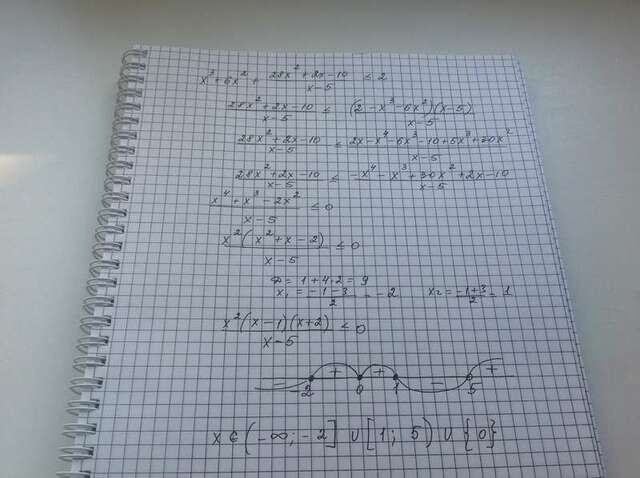 x³ + 6x² + (28x² + 2x - 10)/(x - 5) ≤ 2
(28x² + 2x - 10)/(x - 5) ≤ ((2 - x³ - 6x²)(x - 5))/(x - 5)
(28x² + 2x - 10)/(x - 5) ≤ (2x - x⁴ - 6x³ - 10 + 5x³ + 30x²)/(x - 5)
(28x² + 2x - 10)/(x - 5) ≤ (-x⁴ - x³ + 30x² + 2x - 10)/(x - 5)
(x⁴ + x³ - 2x²)/(x - 5) ≤ 0
(x²(x² + x - 2))/(x - 5) ≤ 0
D = 1 + 4·2 = 9
x₁ = (-1 - 3)/2 = -2 x₂ = (-1 + 3)/2 = 1
(x²(x - 1)(x + 2))/(x - 5) ≤ 0
- + + - +
-2 0 1 5
x ∈ (-∞; -2] ∪ [1; 5) ∪ {0}